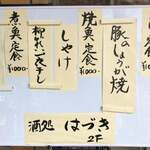 豚のしょうが焼
焼魚定食
¥1000-
しゃけ
柳かれい一夜干し
煮魚定食
¥1000-
酒処 はづき
2F